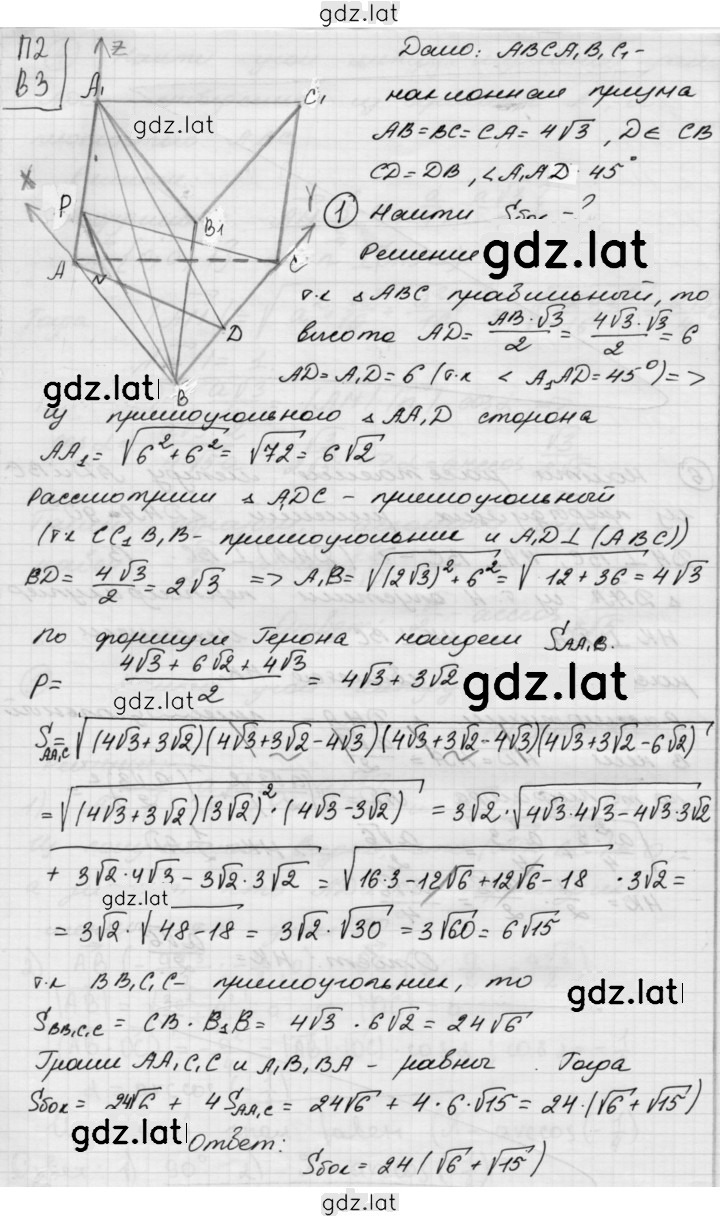 gdz.lat
П2
В3
Z
A₁
C₁
gdz.lat
X
Y
P
B₁
A
C
D
B
gdz.lat
Дано: ABCA₁B₁C₁ -
наклонная призма
AB=BC=CA= 4√3 , D∈ CB
CD=DB , ∠A₁AD · 45°
① Найти Sбок - ?
gdz.lat
Решение
т.к △ABC правильный, то
высота AD= AB·√3/2 = 4√3·√3/2 = 6
AD=A₁D= 6 (т.к ∠ A₁AD=45°) =>
из прямоугольного △AA₁D сторона
AA₁= √(6²+6²)= √72= 6√2
Рассмотрим △A₁DC - прямоугольный
(т.к CC₁B₁B- прямоугольник и A₁D⊥(ABC))
BD= 4√3/2 = 2√3 => A₁B= √((2√3)²+6²)= √(12+36) = 4√3
По формуле Герона найдем S AA₁B.
P= (4√3 + 6√2 + 4√3)/2 = 4√3+ 3√2
gdz.lat
gdz.lat
S AA₁C = √((4√3+3√2)(4√3+3√2-4√3)(4√3+3√2-4√3)(4√3+3√2-6√2))
= √((4√3+3√2)(3√2)²·(4√3-3√2)) = 3√2·√(4√3·4√3-4√3·3√2
+ 3√2·4√3- 3√2·3√2) = √(16·3-12√6+12√6-18) ·3√2=
gdz.lat
= 3√2·√(48-18) = 3√2·√30 =3√60= 6√15
т.к BB₁C₁C- прямоугольник, то
gdz.lat
S BB₁C₁C = CB · B₁B= 4√3 · 6√2 = 24√6
Грани AA₁C₁C и A₁B₁BA - равны . Тогда
Sбок= 24√6 + 4S AA₁C = 24√6 + 4·6·√15= 24·(√6+√15)
gdz.lat
Ответ:
Sбок= 24(√6+√15)
gdz.lat